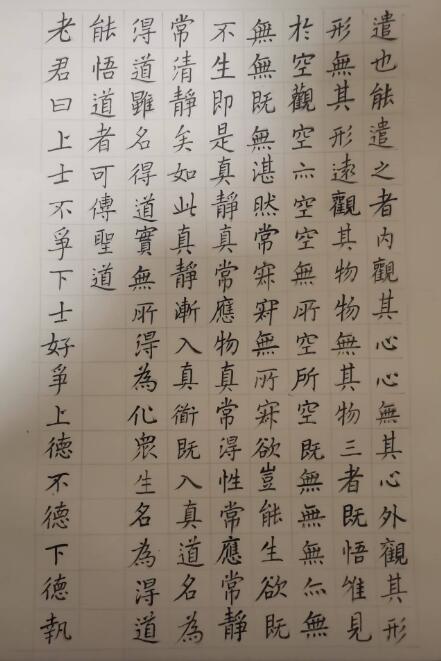 遣也能遣之者內觀其心心無其心外觀其形
形無其形遠觀其物物無其物三者既悟惟見
於空觀空亦空空無所空所空既無無無亦無
無無既無湛然常寂寂無所寂欲豈能生欲既
不生即是真靜真常應物真常得性常應常靜
常清靜矣如此真靜漸入真衟既入真道名為
得道雖名得道實無所得為化眾生名為得道
能悟道者可傳聖道
老君曰上士不爭下士好爭上德不德下德執